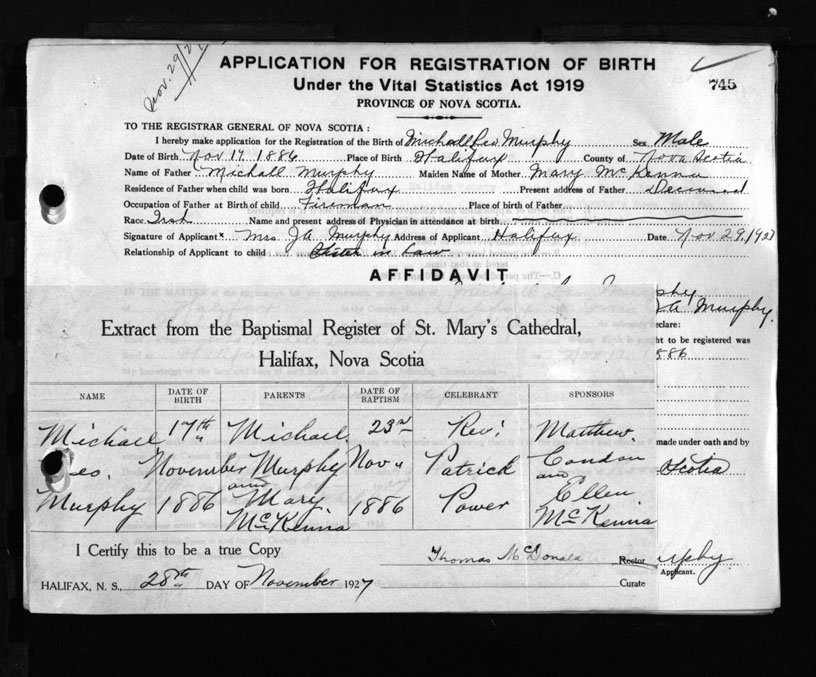 Nov. 29/27
745
APPLICATION FOR REGISTRATION OF BIRTH
Under the Vital Statistics Act 1919
PROVINCE OF NOVA SCOTIA.
TO THE REGISTRAR GENERAL OF NOVA SCOTIA :
I hereby make application for the Registration of the Birth of Michael Leo Murphy Sex Male
Date of Birth Nov 17 1886 Place of Birth Halifax County of Nova Scotia
Name of Father Michall Murphy Maiden Name of Mother Mary McKenna
Residence of Father when child was born Halifax Present address of Father Deceased
Occupation of Father at Birth of child Fireman Place of birth of Father
Race Irish Name and present address of Physician in attendance at birth
Signature of Applicant Mrs. J A Murphy Address of Applicant Halifax Date Nov 29, 1927
Relationship of Applicant to child Sister in Law
AFFIDAVIT
Murphy.
declare:
ht to be registered was
1886
made under oath and by
Scotia
Murphy
Applicant.
Extract from the Baptismal Register of St. Mary's Cathedral,
Halifax, Nova Scotia
NAME DATE OF BIRTH PARENTS DATE OF BAPTISM CELEBRANT SPONSORS
Michael 17th Michael 23rd Rev. Matthew
Leo. November Murphy Nov. Patrick Condon
and and
Murphy 1886 Mary 1886 Power Ellen
McKenna McKenna
I Certify this to be a true Copy
Thomas McDonald Rector
HALIFAX, N. S., 28th DAY OF November 1927 Curate